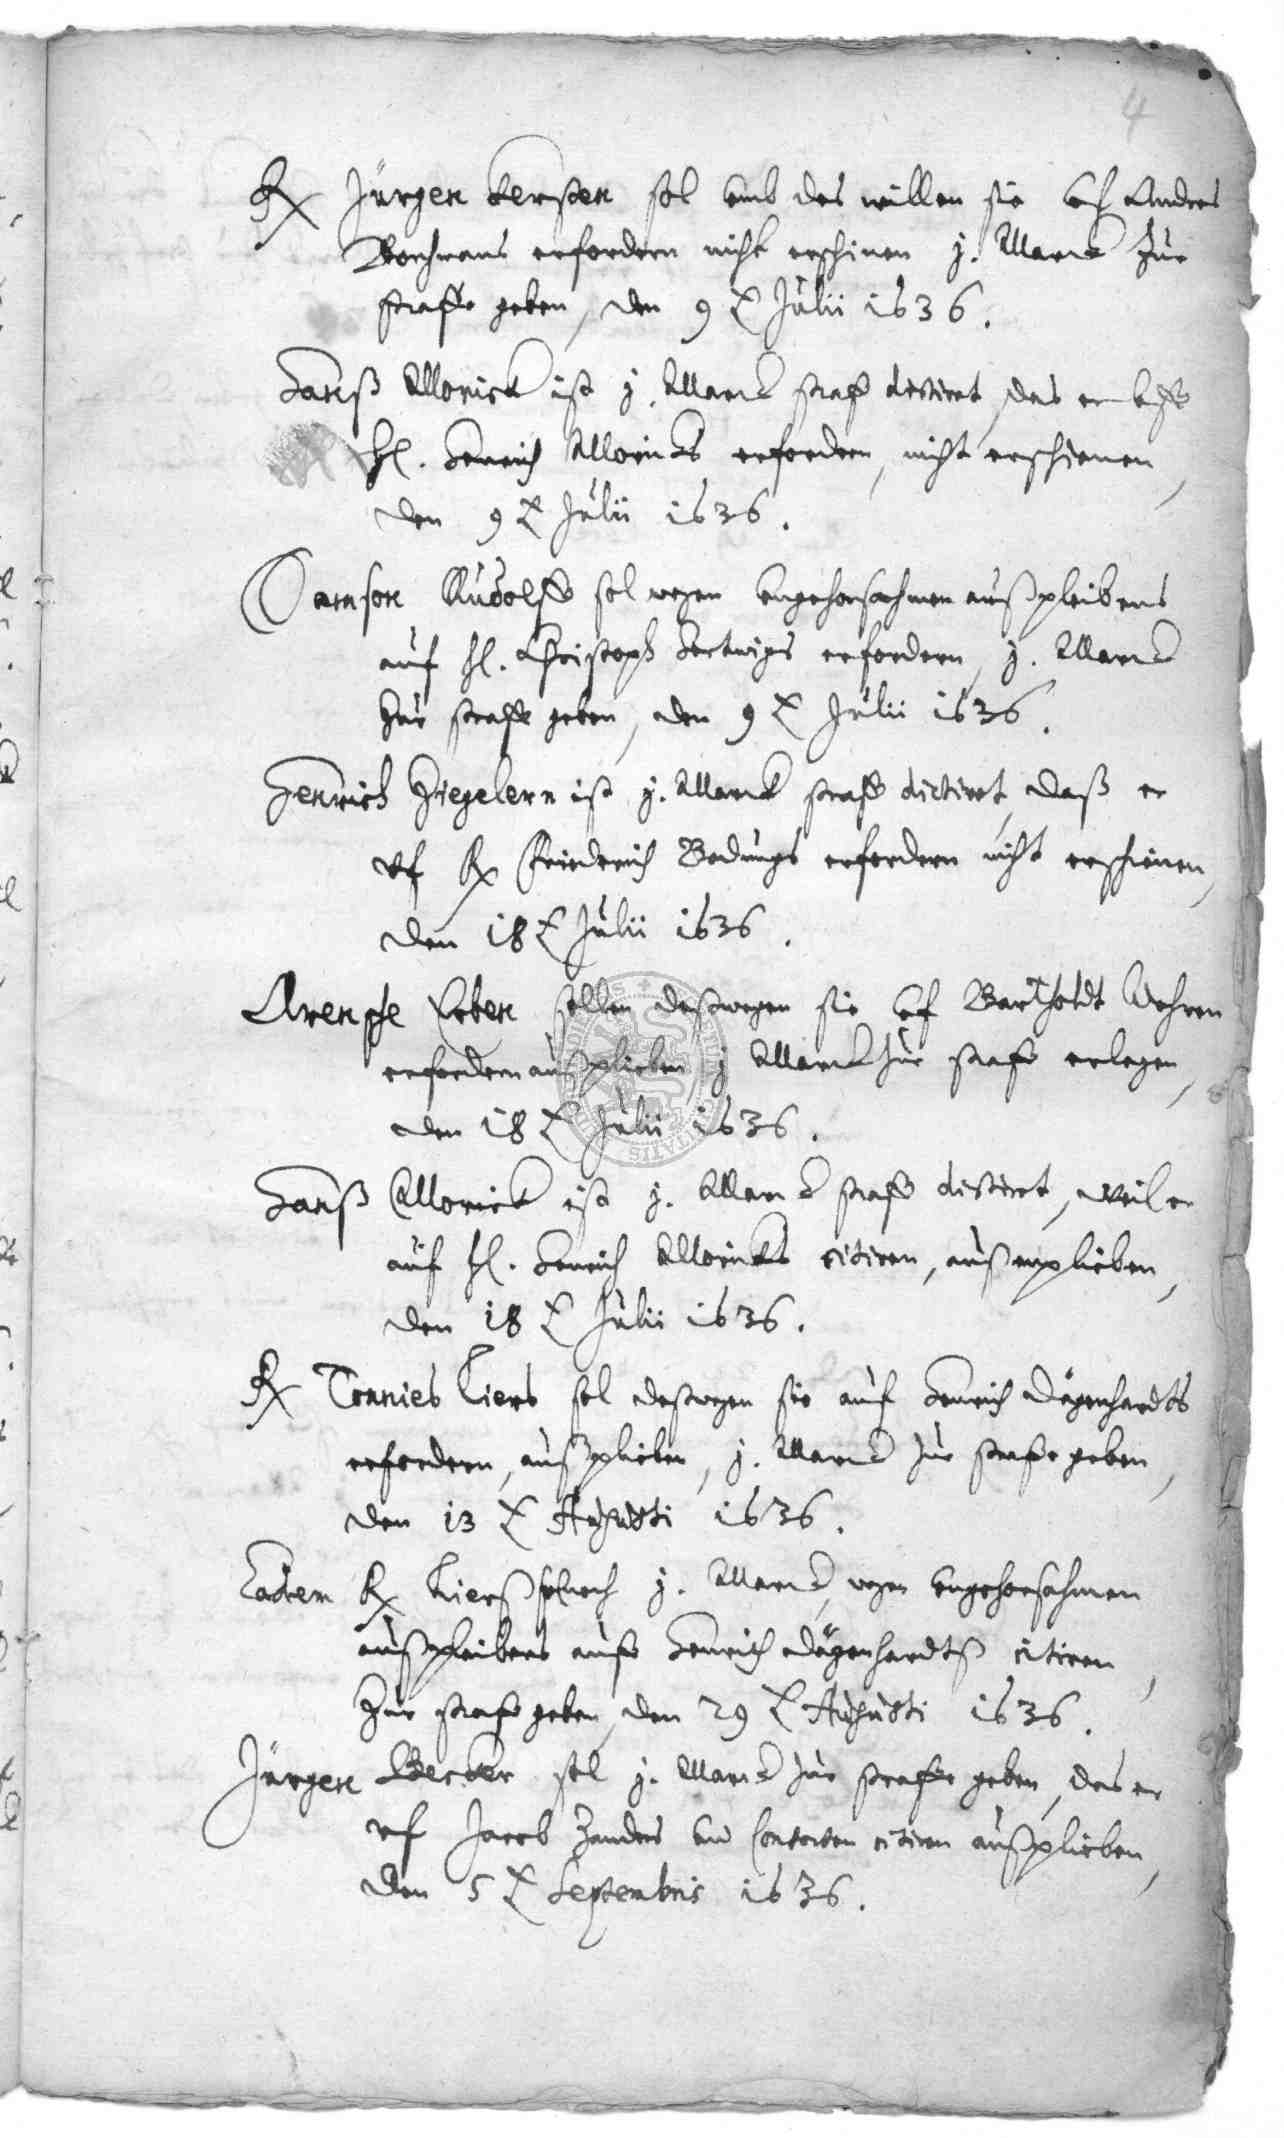 4
Rx Jürgen Kersten sol umb des willen sie uf Andres
Borchmans erfordern nicht erschinen j. Marck Zur
straffe geben, den 9 t Julii 1636.
Hanß Morick ist j. Marck straff dictiret, das er uff
Hl. Henrich Moricks erfordern, nicht erschienen,
den 9 t Julii 1636.
Samson Rudolff sol wegen ungehorsahmen außpleibens
auf Hl. Christoph Hertwigs erfordern, j. Marck
Zur straffe geben, den 9 t Julii 1636.
Henrich Ziegelern ist j. Marck straff dictiret, daß er
uf Rx Friederich Badungs erfordern nicht erschienen,
den 18 t Julii 1636.
Erben sollen deßwegen sie uf Bartholdt Wehren
erfordern außplieben j Marck zur straff erlegen,
den 18 t Julii 1636.
Hanß Morick ist j. Marck straff dictiret, weil er
auf Hl. Henrich Moricks citiren, außenplieben,
den 18 t Julii 1636.
Rx Tonnies Liers sol deßwegen sie auf Henrich Dägenhardts
erfordern, außplieben, j. Marck zur straffe geben,
den 13 t Augusti 1636.
Eadem Rx Lierß sol noch j. Marck, wegen ungehorsahmen
außpleibens aufs Henrich Dägenhardtß citiren,
Zur straff geben, den 29 t Augusti 1636.
Jürgen Becker sol j. Marck zur straffe geben, das er
uf Jacob Zanders und Consorten citiren außplieben,
den 5 t Septembris 1636.